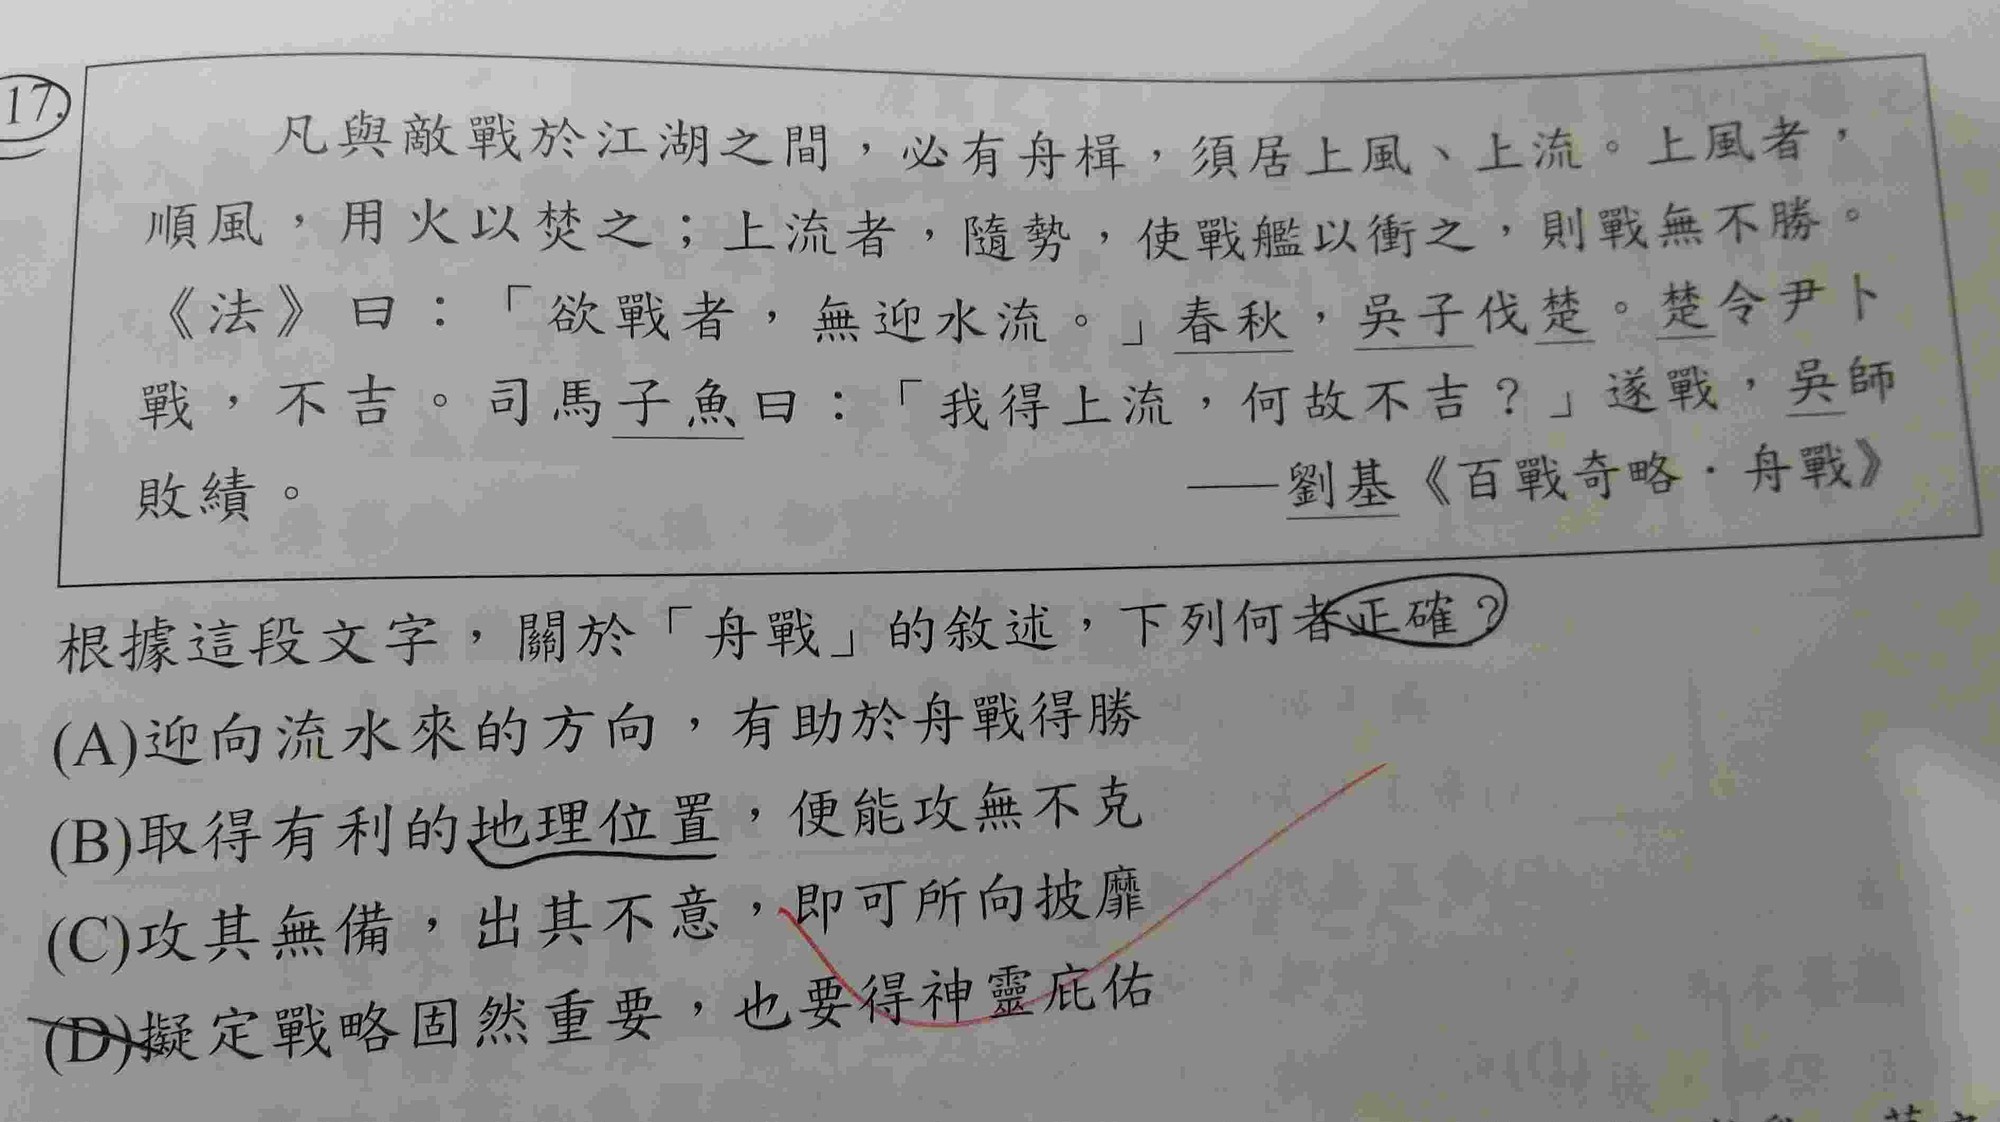 17.
凡與敵戰於江湖之間，必有舟楫，須居上風、上流。上風者，
順風，用火以焚之；上流者，隨勢，使戰艦以衝之，則戰無不勝。
《法》曰：「欲戰者，無迎水流。」春秋，吳子伐楚。楚令尹卜
戰，不吉。司馬子魚曰：「我得上流，何故不吉？」遂戰，吳師
敗績。 ——劉基《百戰奇略·舟戰》
根據這段文字，關於「舟戰」的敘述，下列何者正確？
(A)迎向流水來的方向，有助於舟戰得勝
(B)取得有利的地理位置，便能攻無不克
(C)攻其無備，出其不意，即可所向披靡
(D)擬定戰略固然重要，也要得神靈庇佑